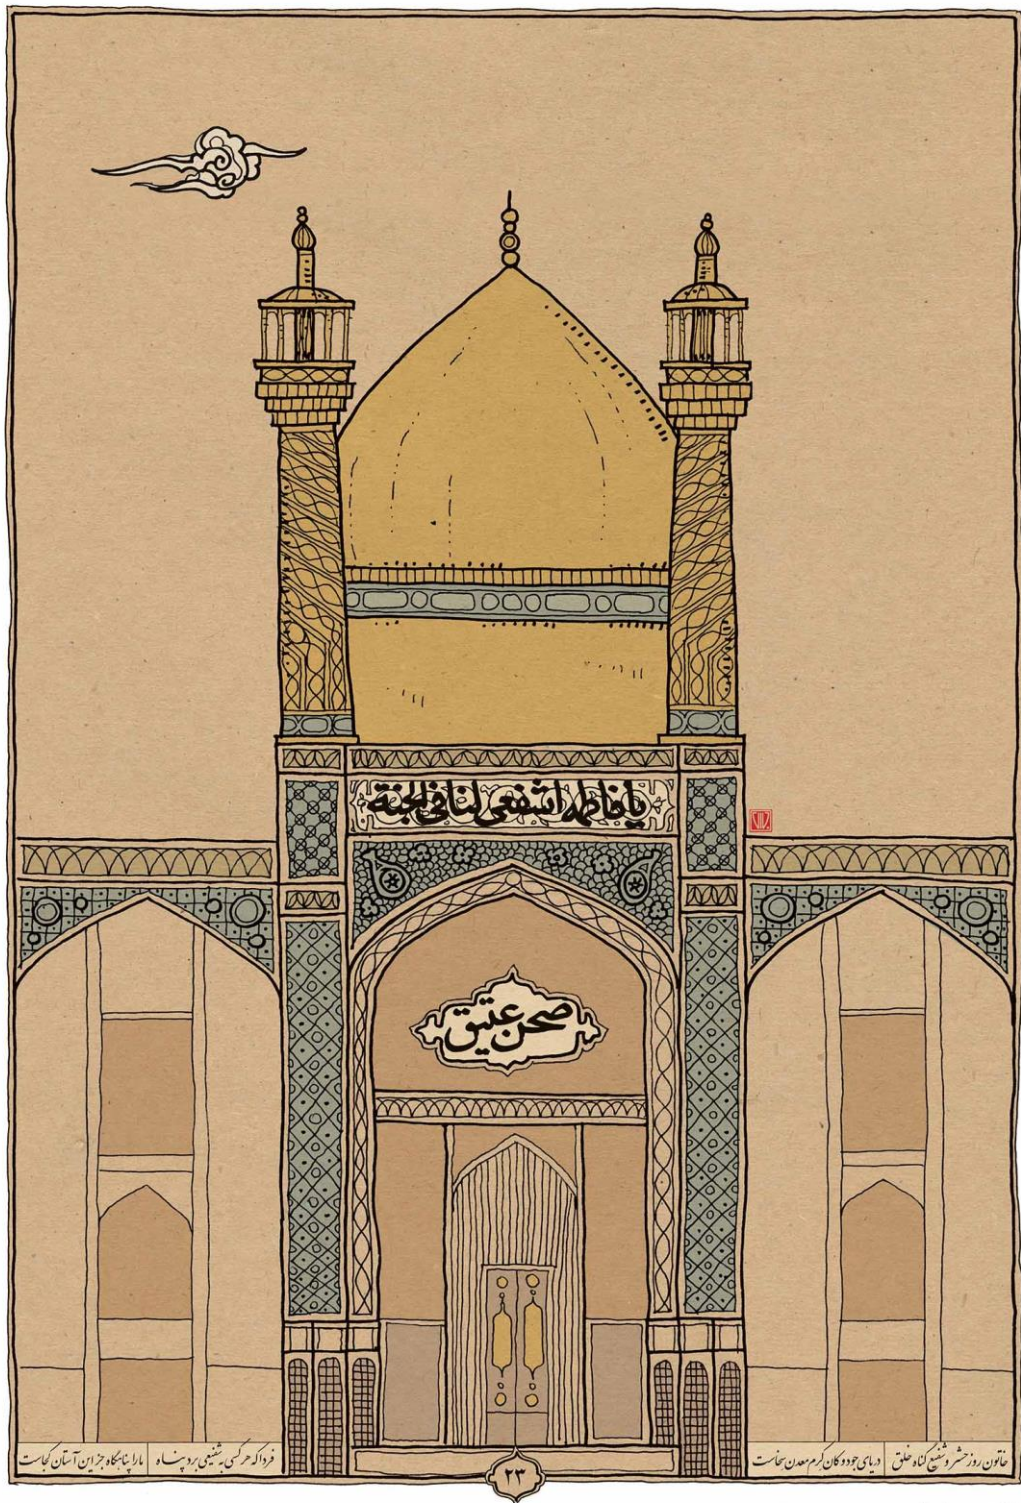 یا فاطمه اشفعی لنا فی الجنة
صحن عتیق
خاتون روز حشر و شفیع گناه خلق
دریای جود و کان کرم معدن سخاست
فردا که هر کسی به شفیعی برد پناه
ما را پناهگاه جز این آستان کجاست
۲۳